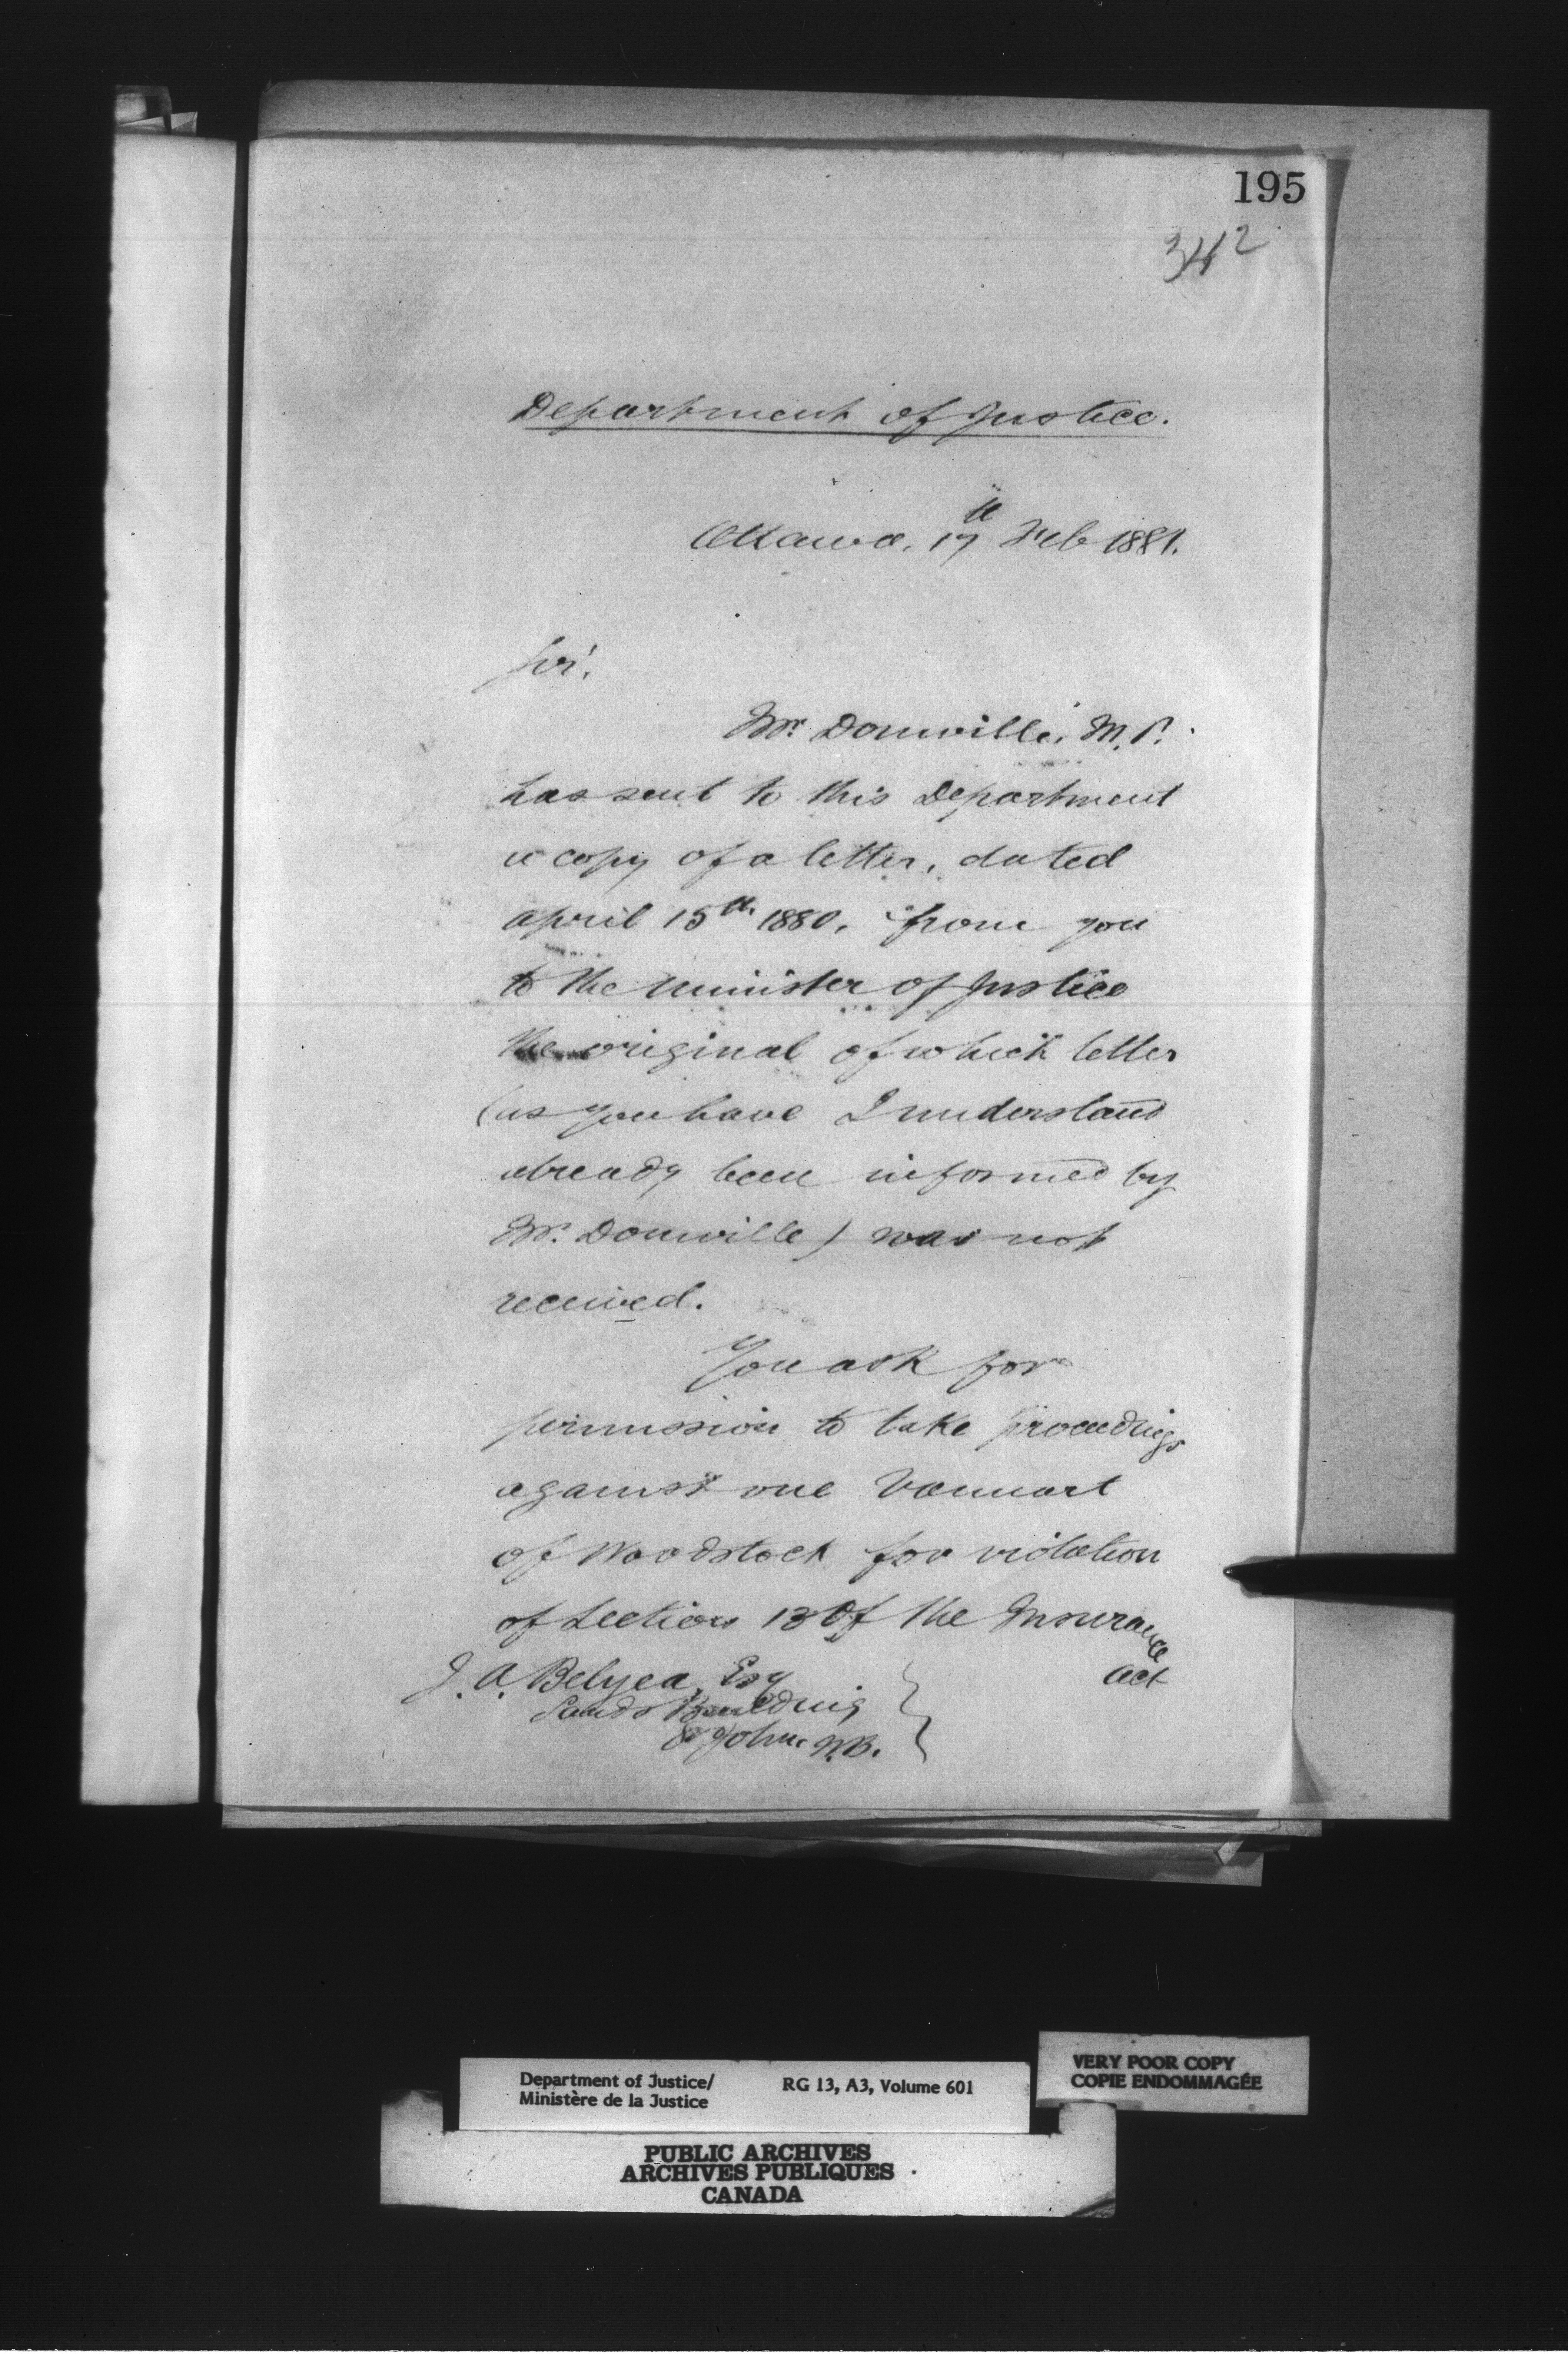 195
342
Department of Justice.
Ottawa, 17th Feb 1881.
Sir,
Mr. Domville, M.P.
has sent to this Department
a copy of a letter, dated
April 15th 1880, from you
to the Minister of Justice
the original of which letter
(as you have I understand
already been informed by
Mr. Domville) was not
received.
You ask for
permission to take proceedings
against one Vanwart
of Woodstock for violation
of Section 13 of the Insurance
Act
J. A. Belyea, Esq
Sands Building
St John N.B.
Department of Justice/
Ministère de la Justice
RG 13, A3, Volume 601
VERY POOR COPY
COPIE ENDOMMAGÉE
PUBLIC ARCHIVES
ARCHIVES PUBLIQUES
CANADA